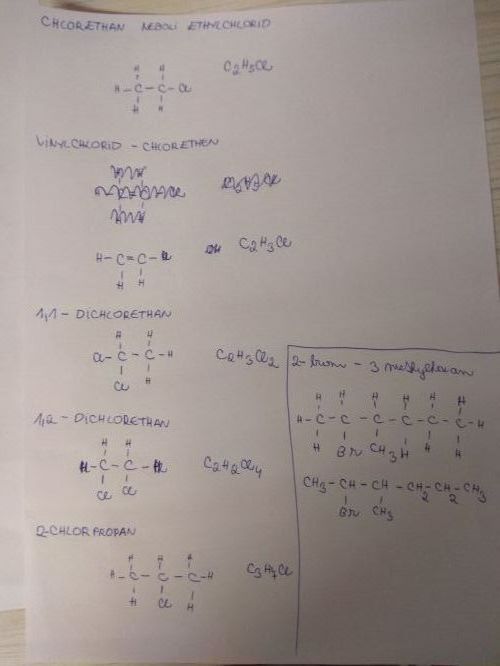 CHLORETHAN NEBOLI ETHYLCHLORID
H H
C2H5Cl
H - C - C - Cl
H H
VINYLCHLORID - CHLORETHEN
H - C = C - Cl
C2H3Cl
H H
1,1 - DICHLORETHAN
H H
Cl - C - C - H
C2H3Cl2
Cl H
1,2 - DICHLORETHAN
H H
H - C - C - H
C2H2Cl4
Cl Cl
2-CHLORPROPAN
H H H
H - C - C - C - H
C3H7Cl
H Cl H
2-brom - 3 methylhexan
H H H H H H
H - C - C - C - C - C - C - H
H Br CH3 H H H
CH3 - CH - CH - CH2 - CH2 - CH3
Br CH3